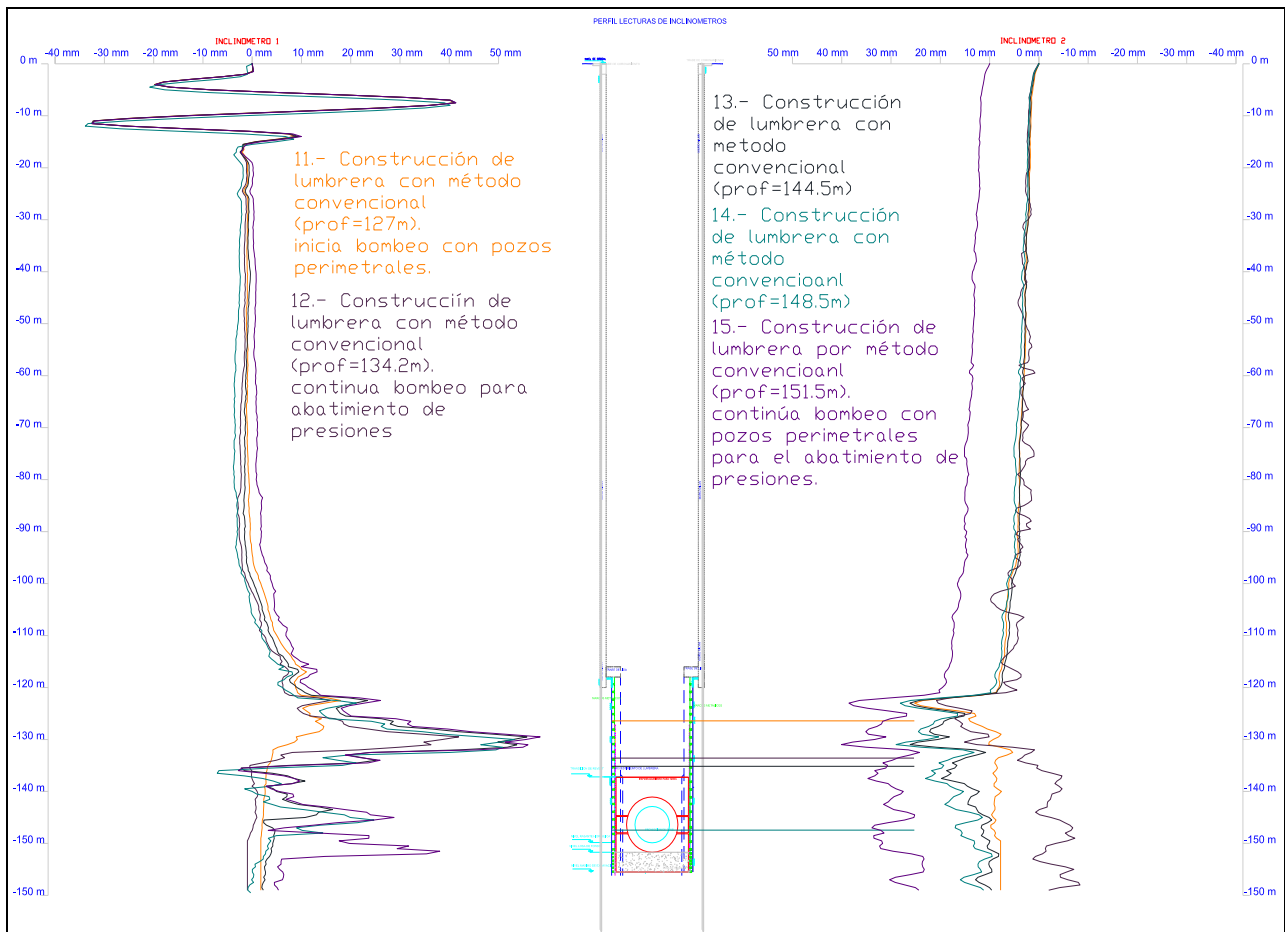 PERFIL LECTURAS DE INCLINOMETROS
INCLINOMETRO 1
-40 mm -30 mm -20 mm -10 mm 0 mm 10 mm 20 mm 30 mm 40 mm 50 mm
INCLINOMETRO 2
50 mm 40 mm 30 mm 20 mm 10 mm 0 mm -10 mm -20 mm -30 mm -40 mm
0 m
-10 m
-20 m
-30 m
-40 m
-50 m
-60 m
-70 m
-80 m
-90 m
-100 m
-110 m
-120 m
-130 m
-140 m
-150 m
-150 m
11.- Construcción de
lumbrera con método
convencional
(prof=127m).
inicia bombeo con pozos
perimetrales.
12.- Construcciín de
lumbrera con método
convencional
(prof=134.2m).
continua bombeo para
abatimiento de
presiones
13.- Construcción
de lumbrera con
metodo
convencional
(prof=144.5m)
14.- Construcción
de lumbrera con
método
convencioanl
(prof=148.5m)
15.- Construcción de
lumbrera por método
convencioanl
(prof=151.5m).
continúa bombeo con
pozos perimetrales
para el abatimiento de
presiones.
0 m
-10 m
-20 m
-30 m
-40 m
-50 m
-60 m
-70 m
-80 m
-90 m
-100 m
-110 m
-120 m
-130 m
-140 m
-150 m
-150 m